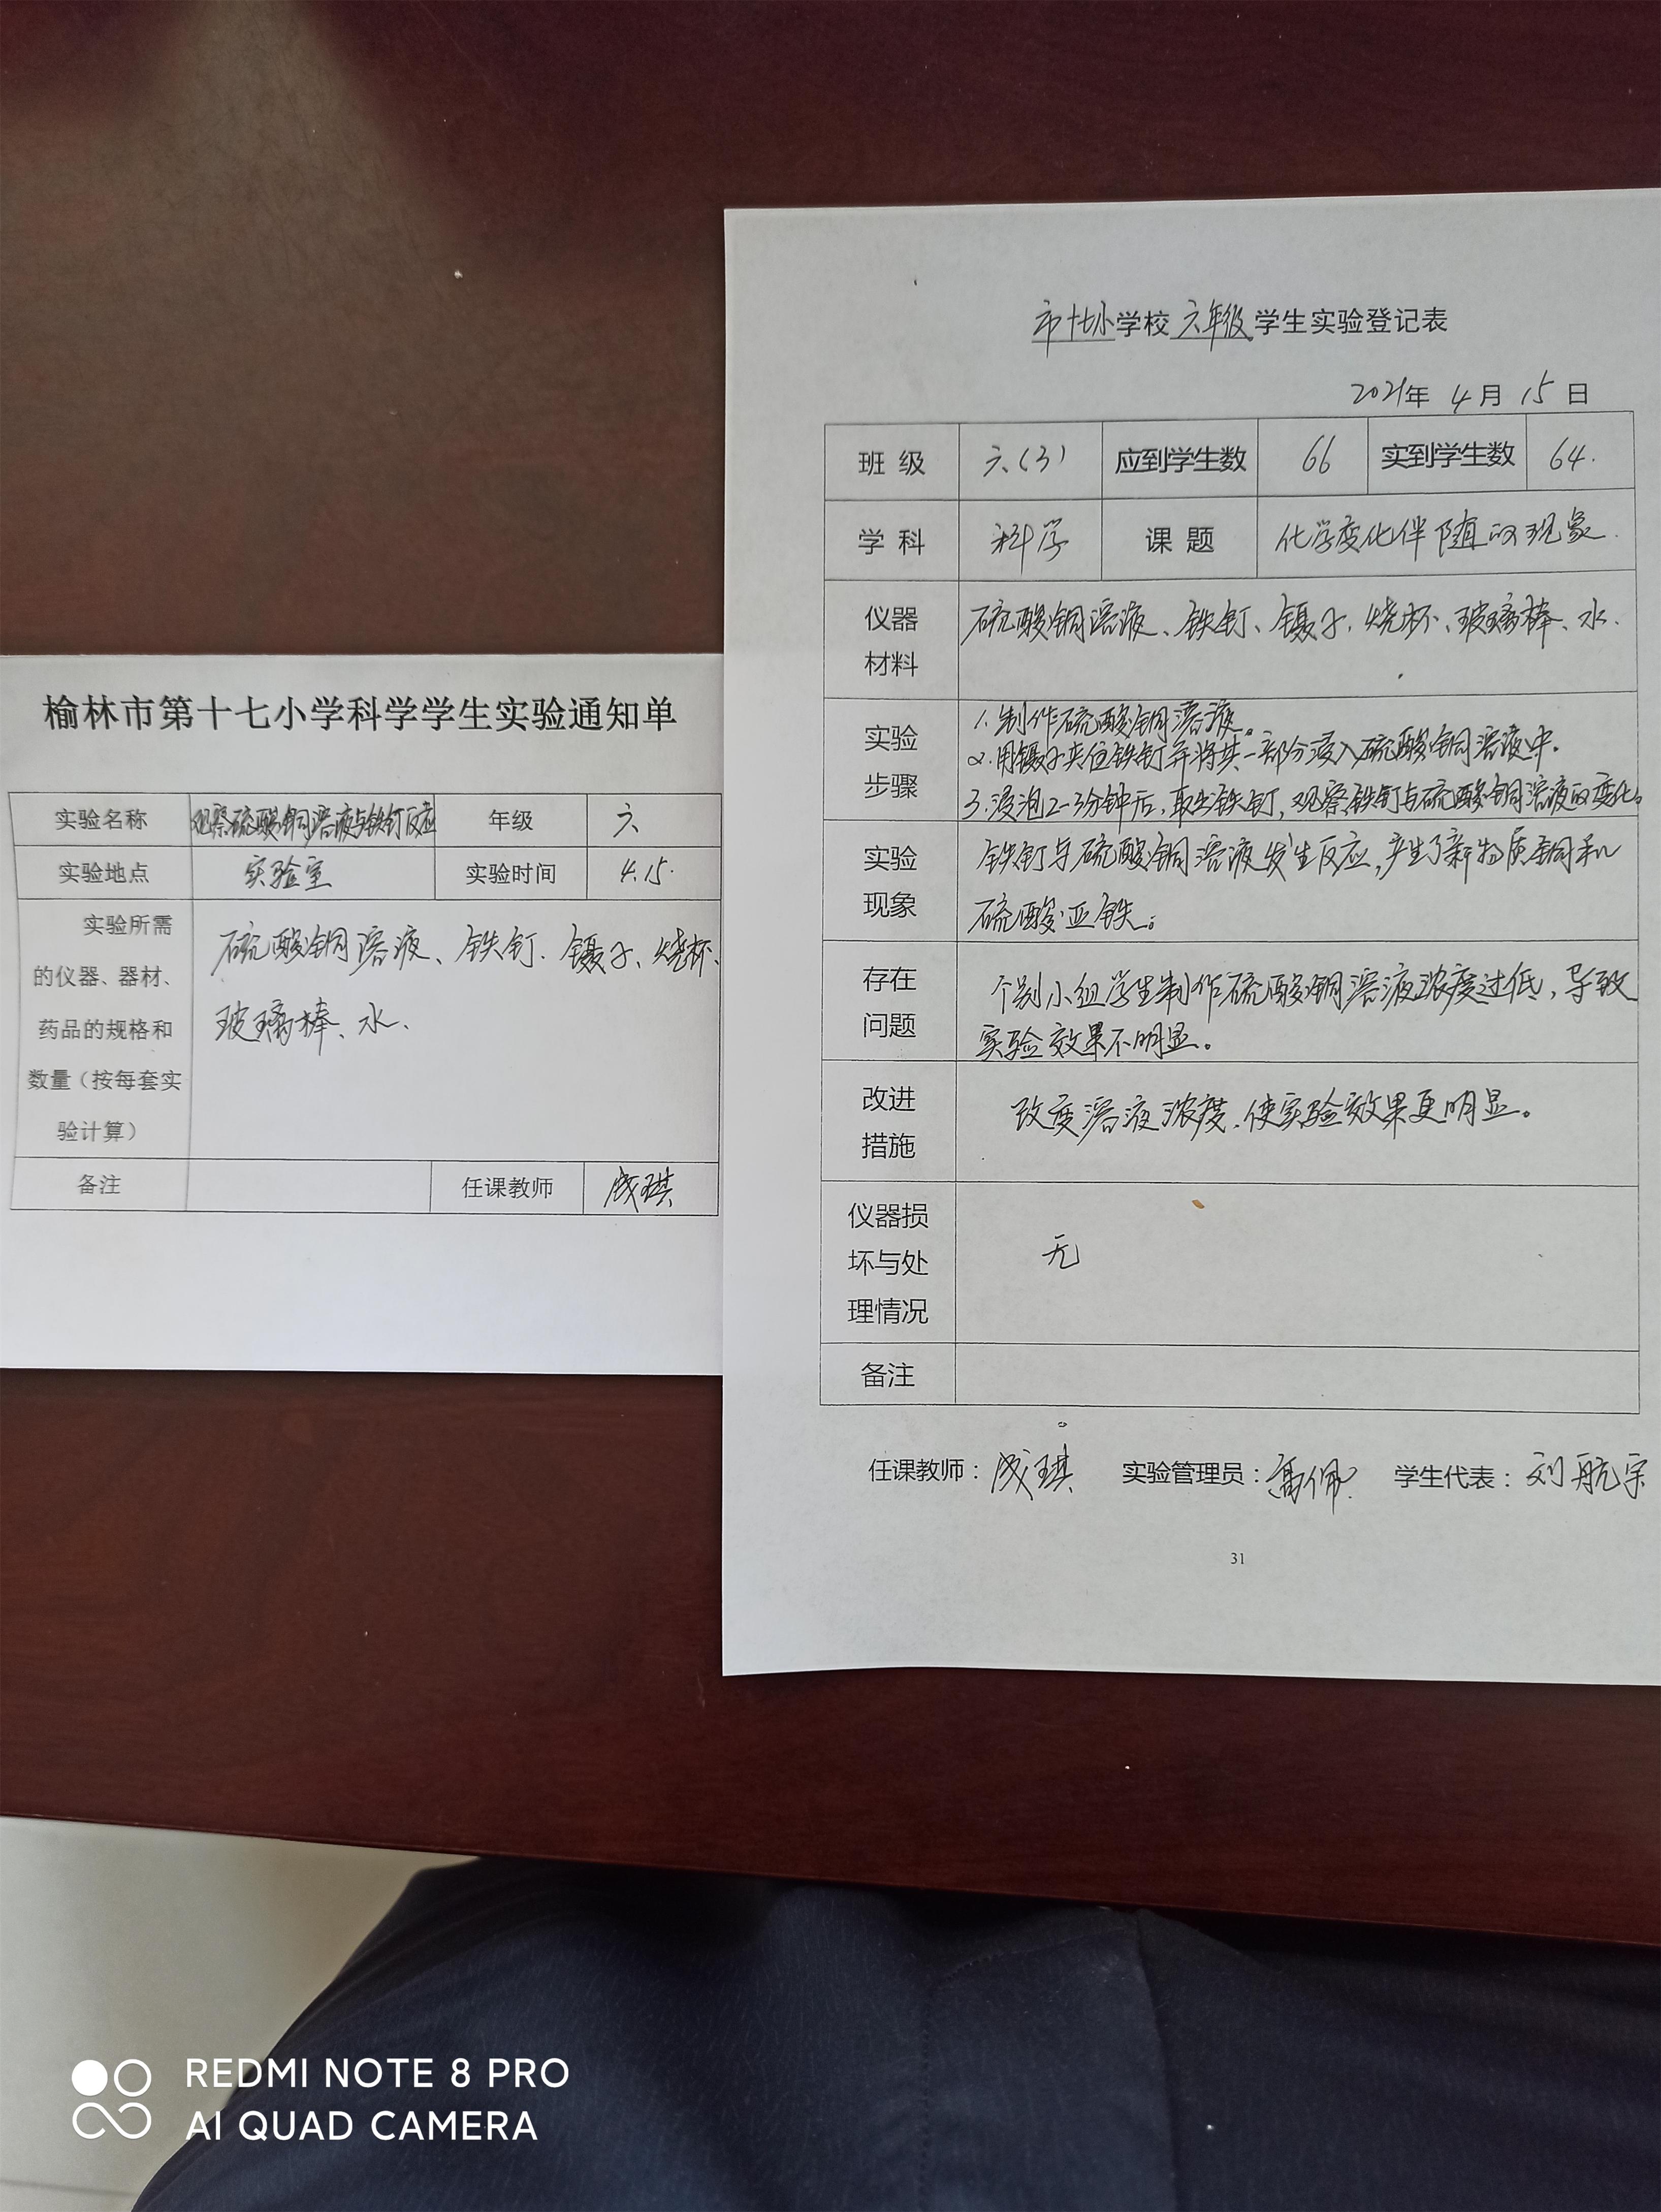 榆林市第十七小学科学学生实验通知单
实验名称 观察硫酸铜溶液与铁钉反应 年级 六
实验地点 实验室 实验时间 4.15.
实验所需
的仪器、器材、
药品的规格和
数量（按每套实
验计算）
硫酸铜溶液、铁钉、镊子、烧杯、
玻璃棒、水.
备注 任课教师 成琪
市十七小学校六年级学生实验登记表
2021年 4月 15日
班 级 六(3) 应到学生数 66 实到学生数 64.
学 科 科学 课 题 化学变化伴随的现象.
仪器
材料
硫酸铜溶液、铁钉、镊子、烧杯、玻璃棒、水.
实验
步骤
1.制作硫酸铜溶液。
2.用镊子夹住铁钉并将其一部分浸入硫酸铜溶液中.
3.浸泡2-3分钟后，取出铁钉，观察铁钉与硫酸铜溶液的变化。
实验
现象
铁钉与硫酸铜溶液发生反应，产生了新物质铜和
硫酸亚铁。
存在
问题
个别小组学生制作硫酸铜溶液浓度过低，导致
实验效果不明显。
改进
措施
改变溶液浓度，使实验效果更明显。
仪器损
坏与处
理情况
无
备注
任课教师：成琪 实验管理员：高佩 学生代表：刘航宗
31
REDMI NOTE 8 PRO
AI QUAD CAMERA